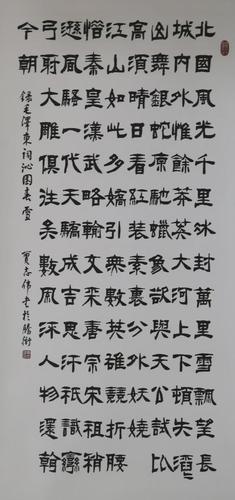 北國風光千里冰封萬里雪飄望長
城內外惟餘莽莽大河上下頓失滔滔
山舞銀蛇原馳蠟象欲與天公試比
高須晴日看紅裝素裹分外妖嬈
江山如此多嬌引無數英雄競折腰
惜秦皇漢武略輸文采唐宗宋祖稍
遜風騷一代天驕成吉思汗祇識彎
弓射大雕俱往矣數風流人物還看
今朝
錄毛澤東詞沁園春雪 賈志偉書於